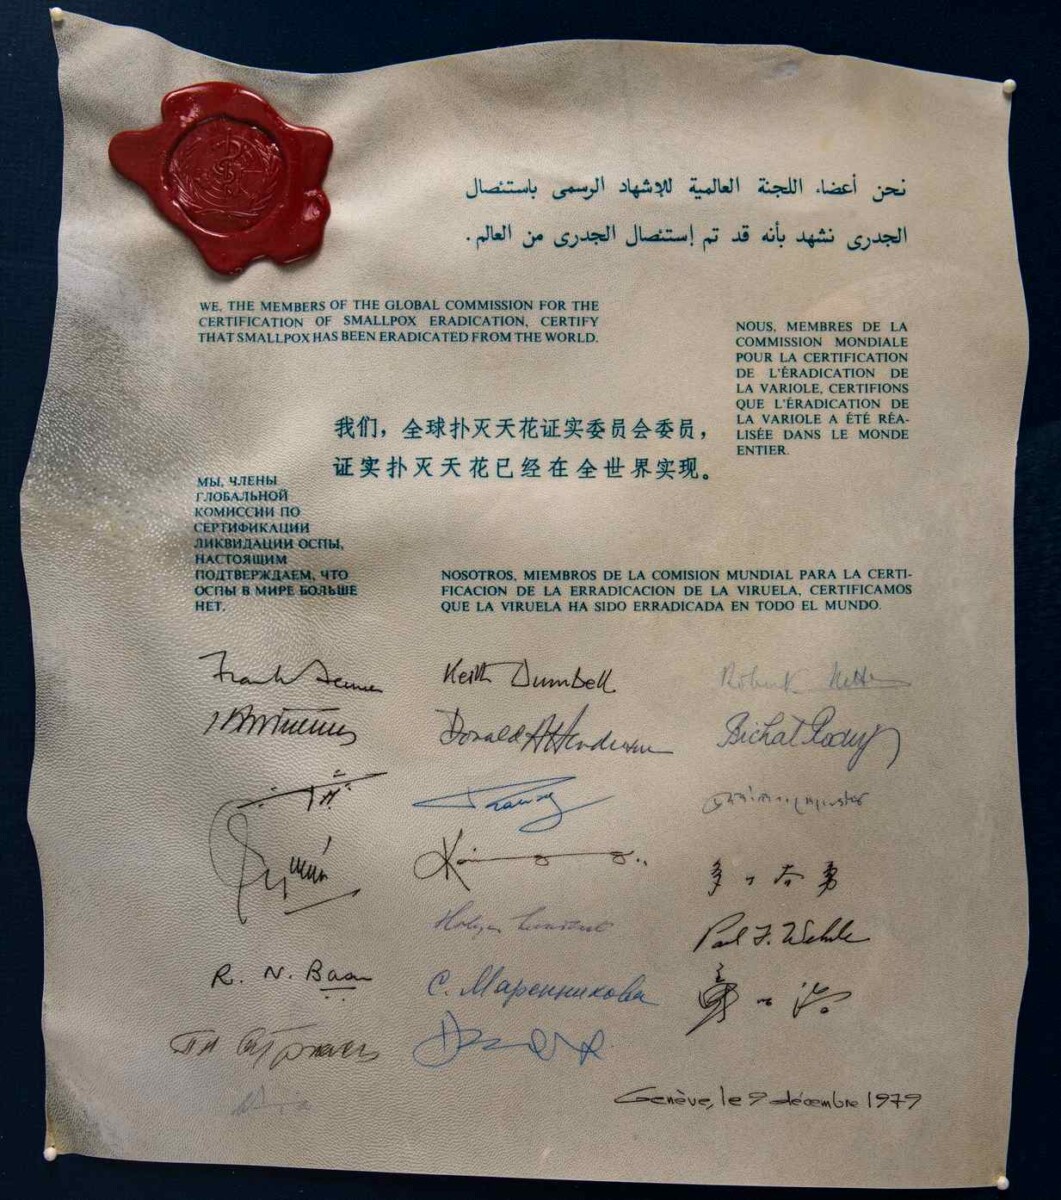 نحن أعضاء اللجنة العالمية للإشهاد الرسمى باستئصال
الجدرى نشهد بأنه قد تم إستئصال الجدرى من العالم.
WE, THE MEMBERS OF THE GLOBAL COMMISSION FOR THE
CERTIFICATION OF SMALLPOX ERADICATION, CERTIFY
THAT SMALLPOX HAS BEEN ERADICATED FROM THE WORLD.
NOUS, MEMBRES DE LA
COMMISSION MONDIALE
POUR LA CERTIFICATION
DE L'ÉRADICATION DE
LA VARIOLE, CERTIFIONS
QUE L'ÉRADICATION DE
LA VARIOLE A ÉTÉ RÉA-
LISÉE DANS LE MONDE
ENTIER.
我们，全球扑灭天花证实委员会委员，
证实扑灭天花已经在全世界实现。
МЫ, ЧЛЕНЫ
ГЛОБАЛЬНОЙ
КОМИССИИ ПО
СЕРТИФИКАЦИИ
ЛИКВИДАЦИИ ОСПЫ,
НАСТОЯЩИМ
ПОДТВЕРЖДАЕМ, ЧТО
ОСПЫ В МИРЕ БОЛЬШЕ
НЕТ.
NOSOTROS, MIEMBROS DE LA COMISION MUNDIAL PARA LA CERTI-
FICACION DE LA ERRADICACION DE LA VIRUELA, CERTIFICAMOS
QUE LA VIRUELA HA SIDO ERRADICADA EN TODO EL MUNDO.
Frank Fenner Keith Dumbell Robert
Donald A Henderson Bichat Rodrigues
Paul F. Wehrle
R. N. Basu С. Маренникова
Genève, le 9 décembre 1979